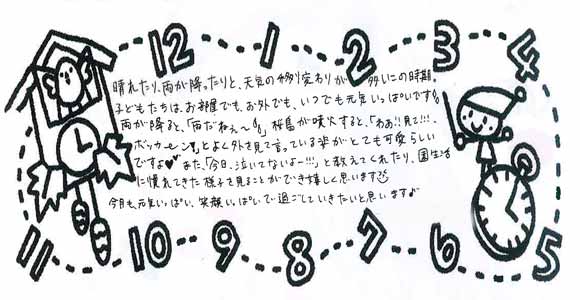 12 1 2 3 4
晴れたり、雨が降ったりと、天気の移り変わりが多いこの時期。
子どもたちは、お部屋でも、お外でも、いつでも元気いっぱいです!!
雨が降ると、「雨だねぇ〜!!」桜島が噴火すると、「わぁ!!見て!!!.
ボッカーン♥」とよく外を見て言っている姿がとても可愛らしい
ですよ♥♥ また、「今日、泣いてないよー!!!」と教えてくれたり、園生活
に慣れてきた様子を見ることができ嬉しく思います
今月も元気いっぱい、笑顔いっぱいで過ごしていきたいと思います♪
11 10 9 8 7 6 5